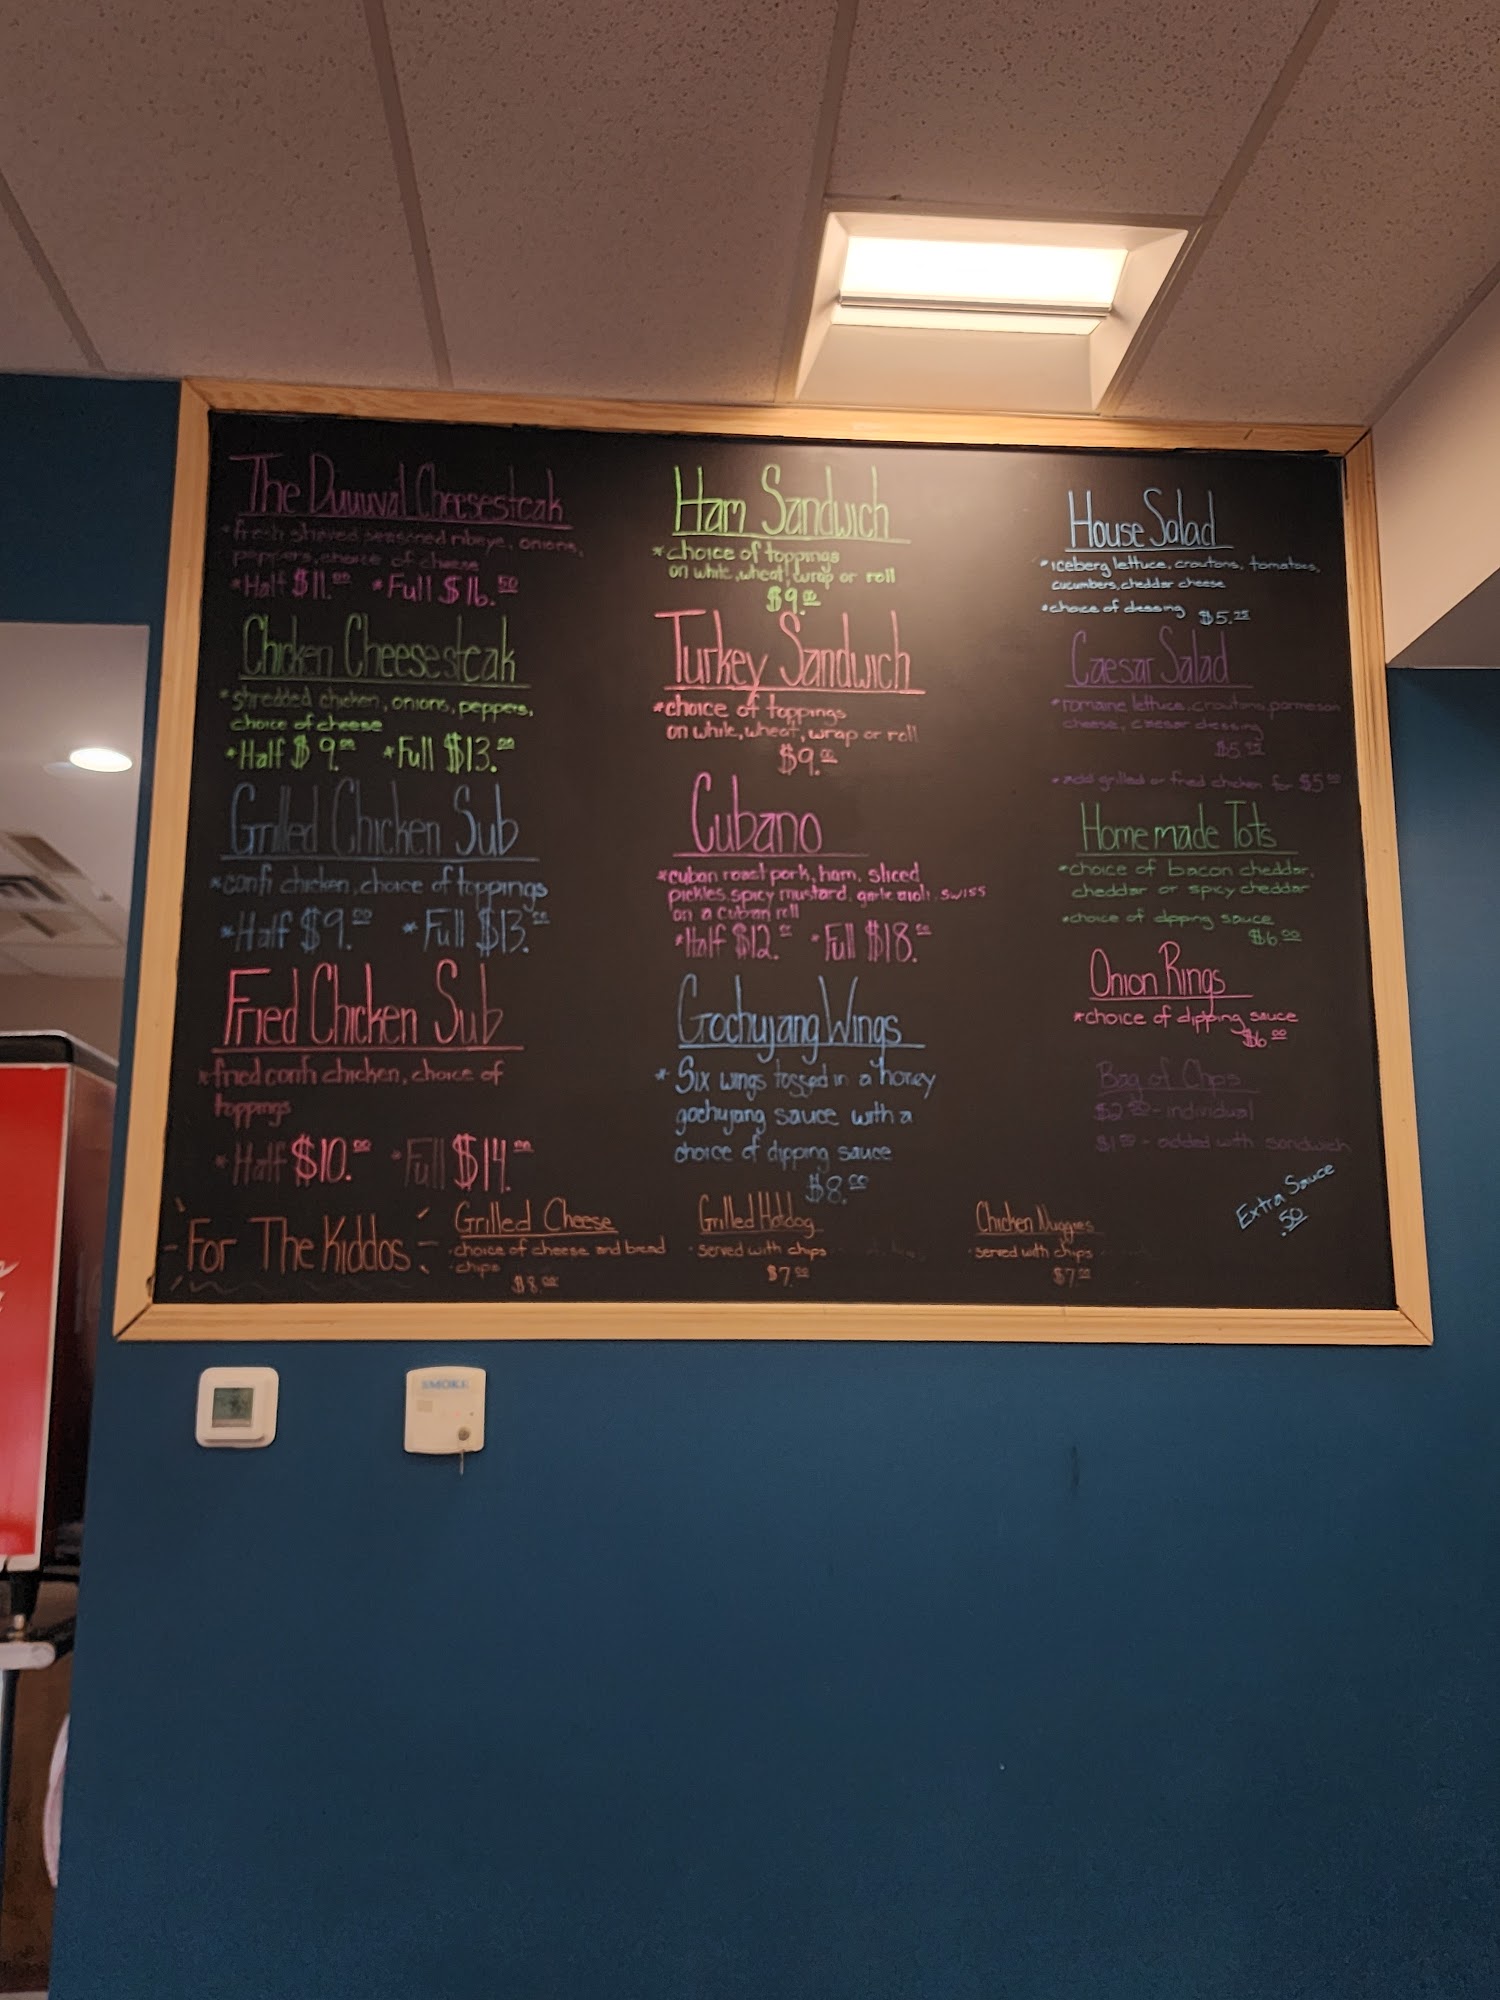 The Duuuval Cheesesteak
*fresh shaved seasoned ribeye, onions,
peppers, choice of cheese
*Half $11.00 *Full $16.50
Chicken Cheesesteak
*shredded chicken, onions, peppers,
choice of cheese
*Half $9.00 *Full $13.00
Grilled Chicken Sub
*confi chicken, choice of toppings
*Half $9.00 *Full $13.00
Fried Chicken Sub
*fried confi chicken, choice of
toppings
*Half $10.00 *Full $14.00
Ham Sandwich
*choice of toppings
on white, wheat, wrap or roll
$9.00
Turkey Sandwich
*choice of toppings
on white, wheat, wrap or roll
$9.00
Cubano
*cuban roast pork, ham, sliced
pickles, spicy mustard, garlic aioli, swiss
on a cuban roll
*Half $12.00 *Full $18.00
Gochujang Wings
* Six wings tossed in a honey
gochujang sauce with a
choice of dipping sauce
$8.00
House Salad
*iceberg lettuce, croutons, tomatoes,
cucumbers, cheddar cheese
*choice of dressing $5.25
Caesar Salad
*romaine lettuce, croutons, parmesan
cheese, caesar dressing
*add grilled or fried chicken for $5.00
Homemade Tots
*choice of bacon cheddar,
cheddar or spicy cheddar
*choice of dipping sauce
$6.00
Onion Rings
*choice of dipping sauce
$6.00
Bag of Chips
- individual
- added with sandwich
Extra Sauce
.50
For The Kiddos
Grilled Cheese
·choice of cheese and bread
·chips
$8.00
Grilled Hotdog
·served with chips
$7.00
Chicken Nuggies
·served with chips
$7.00
SMOKE